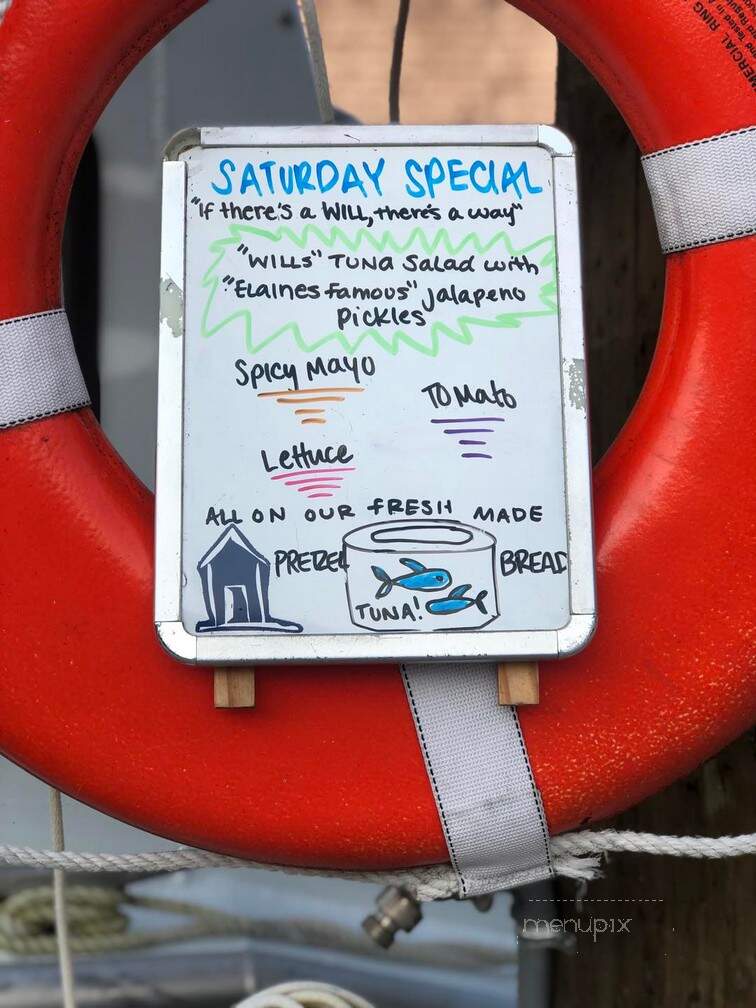 SATURDAY SPECIAL
"If there's a WILL, there's a way"
"WILLs" TUNA Salad with
"ELAINES FAMOUS" Jalapeno
Pickles
SPICY MAYO
TOMATO
Lettuce
ALL ON OUR FRESH MADE
PRETZEL BREAD
TUNA!
menupix